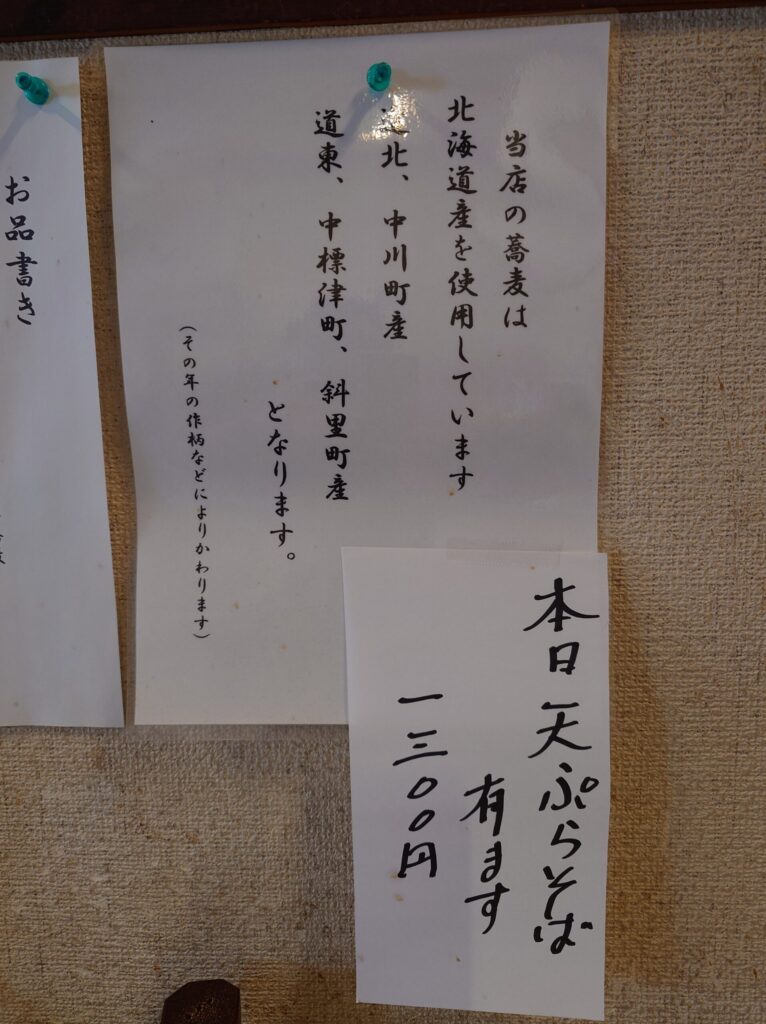 当店の蕎麦は
北海道産を使用しています
道北、中川町産
道東、中標津町、斜里町産
となります。
（その年の作柄などによりかわります）
本日天ぷらそば
有ます
一三〇〇円
お品書き